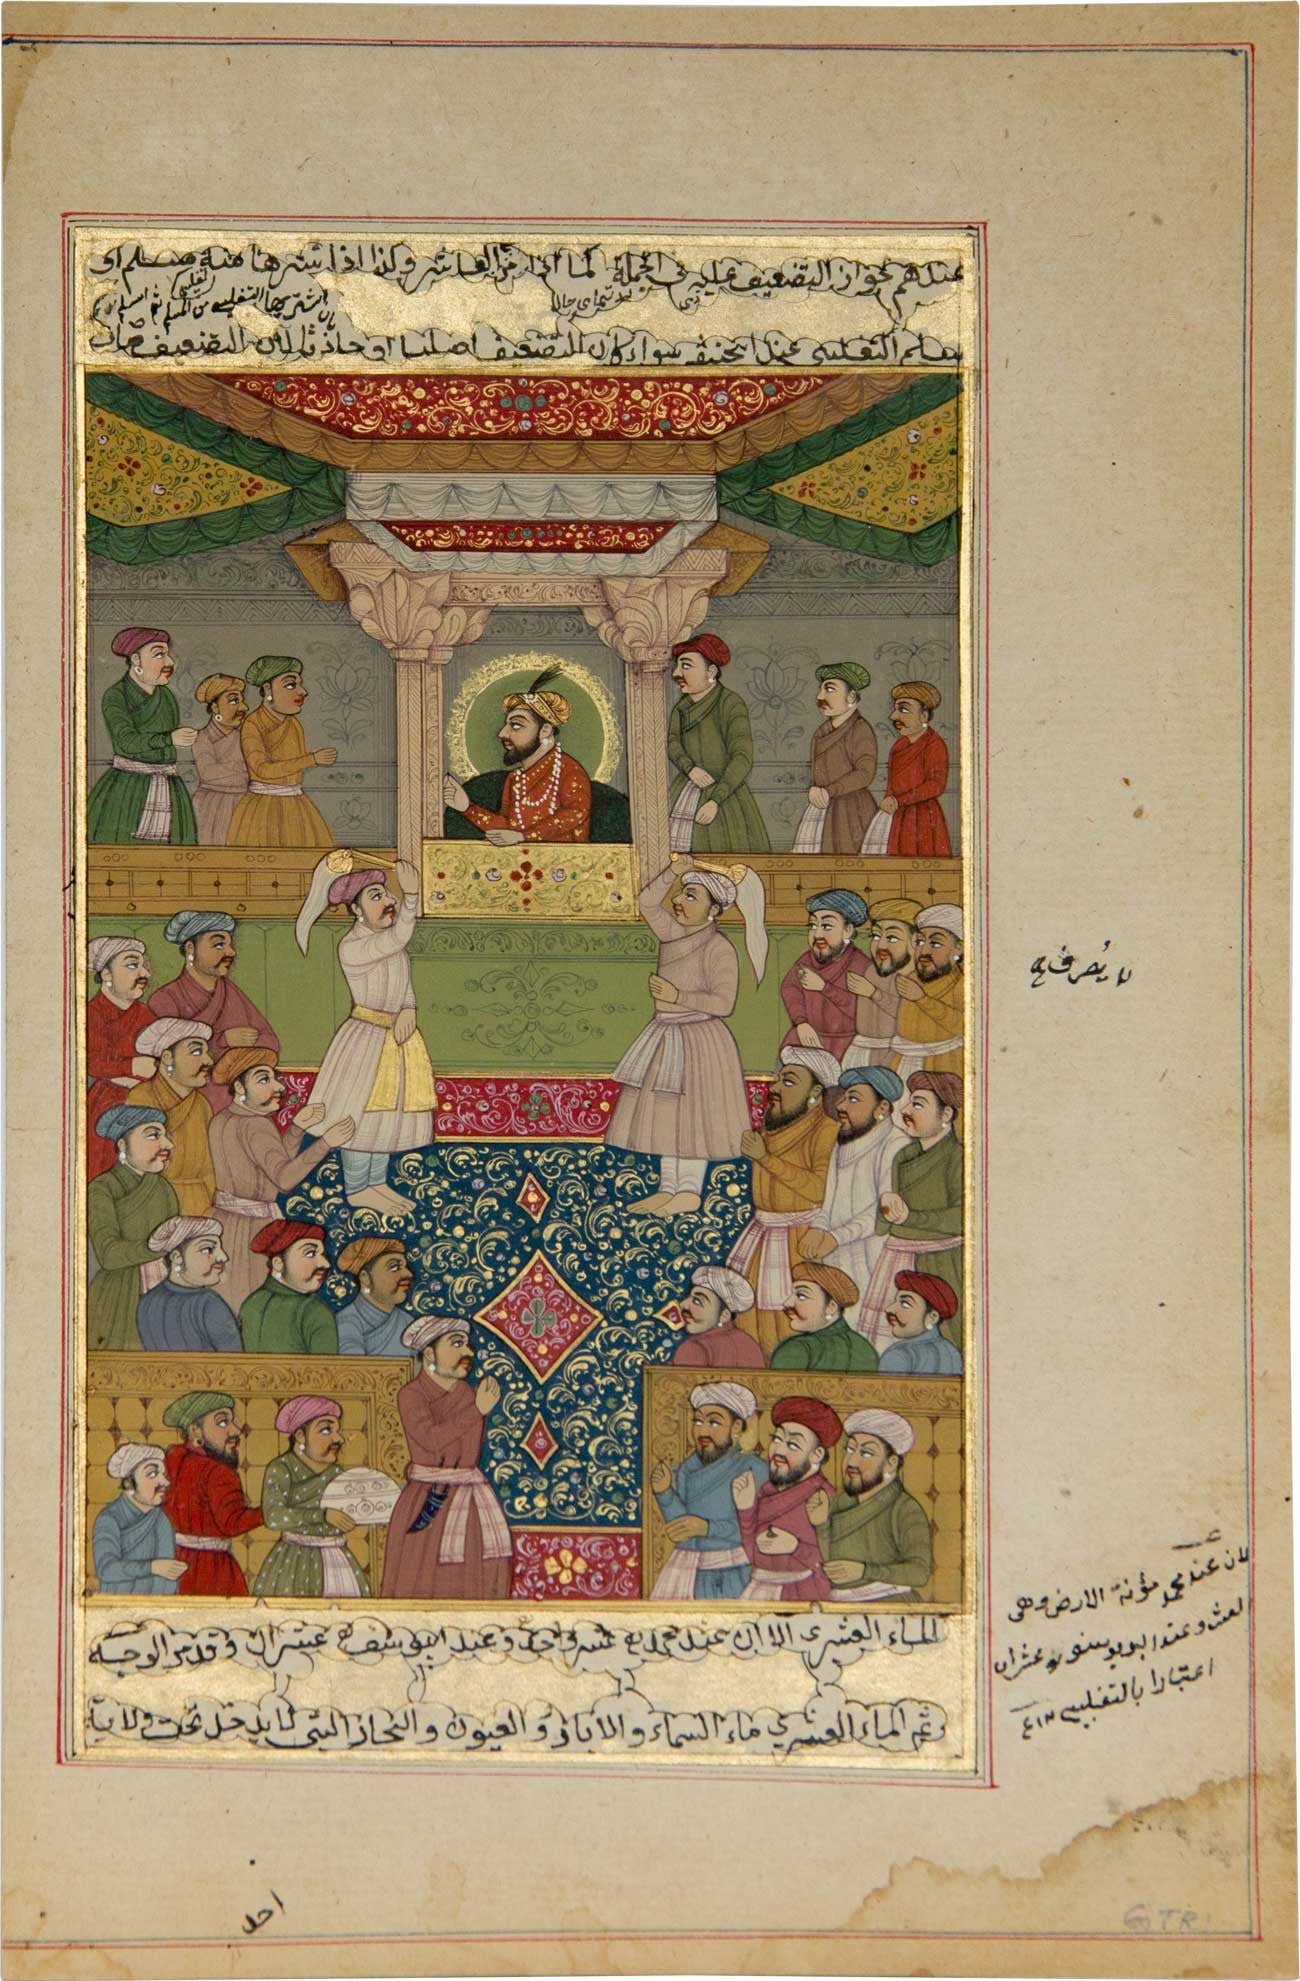 عندهم لجواز التضعيف عليه في الجملة كما اذا مر على العاشر وكذا اذا اشتراها منه مسلم او
اشتريها التغلبي من المسلم ثم اسلم
اسلم التغلبي عند ابي حنيفة سواء كان التضعيف اصليا او حادثا لان التضعيف صار
لا يصرف
لان عند محمد مؤنة الارض وهي
العشر وعند ابو يوسف عشران
اعتبارا بالتغلبي ١٢
الماء العشري الا ان عند محمد عشر واحد وعند ابي يوسف عشران وقد مر الوجه
ثم الماء العشري ماء السماء والآبار والعيون والبحار التي لا يدخل تحت ولاية
احد
GTR